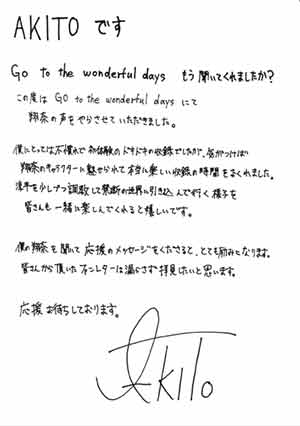 AKITO です
Go to the wonderful days もう聞いてくれましたか？
この度は GO to the wonderful days にて
翔奈の声をやらさせていただきました。
僕にとっては不慣れで初体験のドキドキの収録でしたが、気がつけば
翔奈のキャラクターに魅せられて本当に楽しい収録の時間をおくれました。
相手を少しずつ調教して禁断の世界に引き込んで行く様子を
皆さんも一緒に楽しんでくれると嬉しいです。
僕の翔奈を聞いて応援のメッセージをくださると、とても励みになります。
皆さんから頂いたファンレターは漏らさず拝見したいと思います。
応援お待ちしております。
Akito